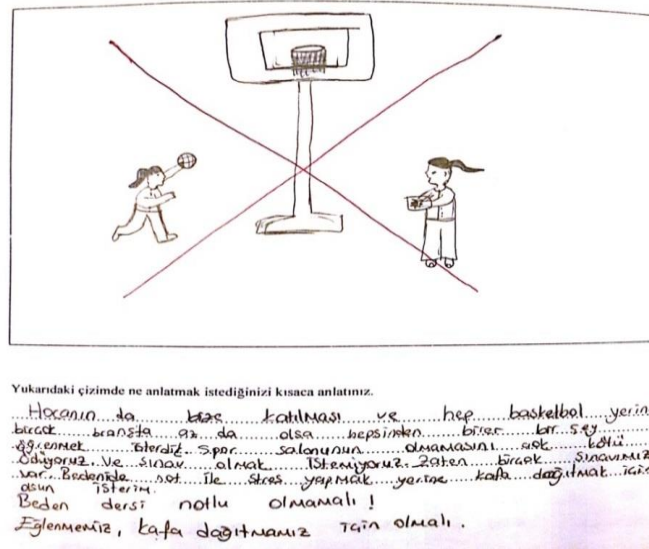 Yukarıdaki çizimde ne anlatmak istediğinizi kısaca anlatınız.
Hocanın da bize katılması ve hep basketbol yerin
bircok branşta az da olsa hepsinden birer bir şey
öğrenmek isterdik. Spor salonunun olmamasını çok kötü
Ödüyoruz. Ve sınav olmak istemiyoruz. Zaten birçok sınavımız
var. Bedenide not ile stres yapmak yerine kafa dağıtmak için
olsun isterim.
Beden dersi notlu olmamalı !
Eğlenmemiz, kafa dağıtmamız için olmalı.